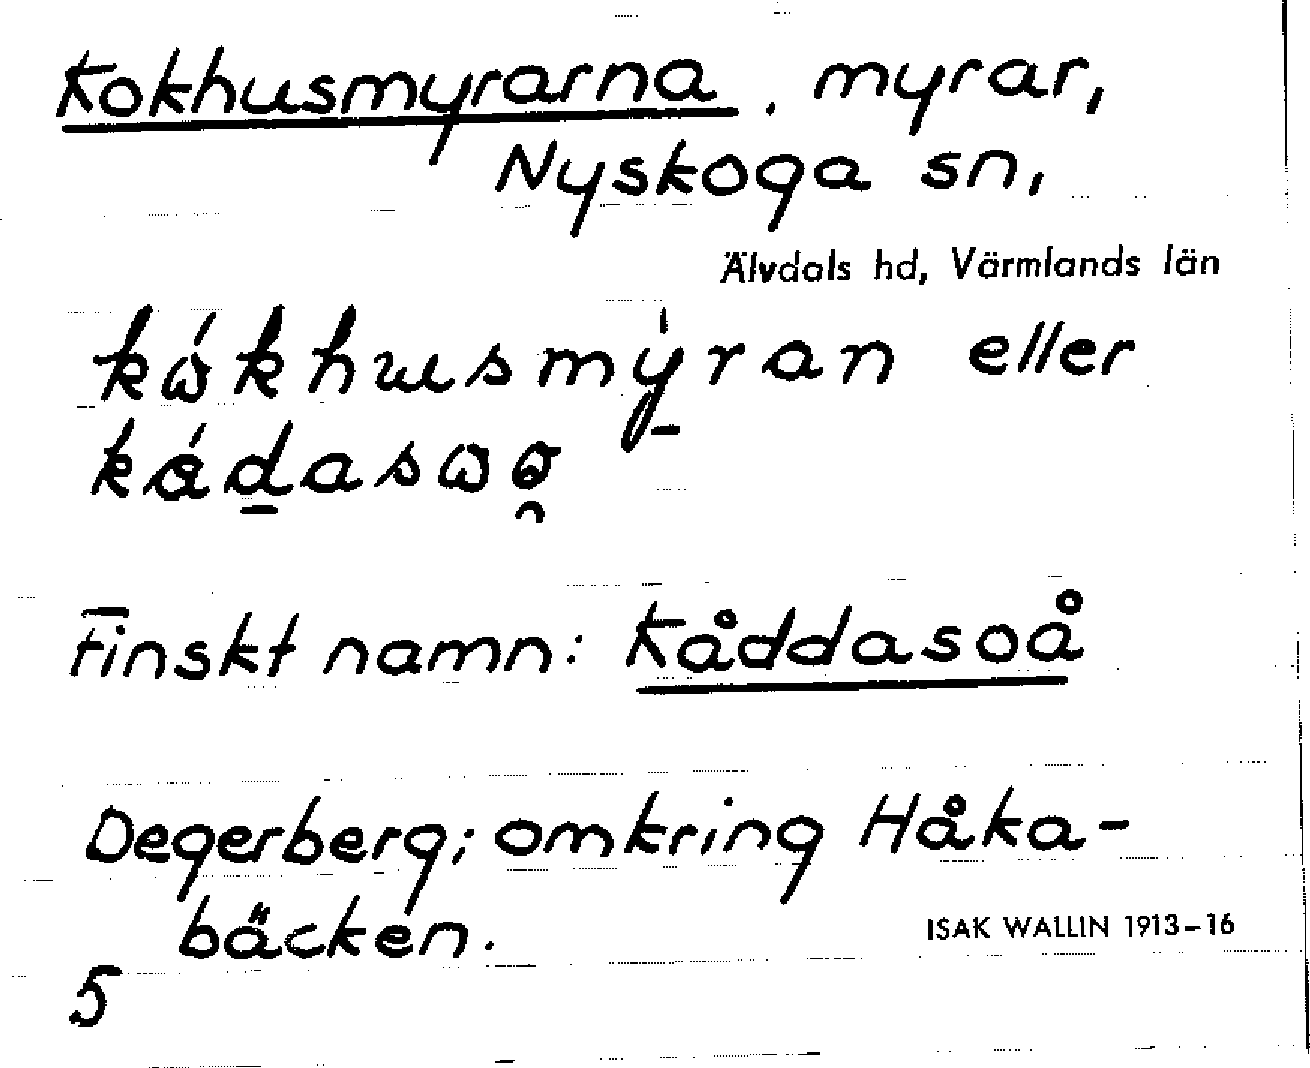 Kokhusmyrarna, myrar,
Nyskoga sn,
Älvdals hd, Värmlands län
kώkhusmýran eller
eller
Finskt namn: Kåddasoå
Degerberg; omkring Håka-
bäcken.
ISAK WALLIN 1913–16
5